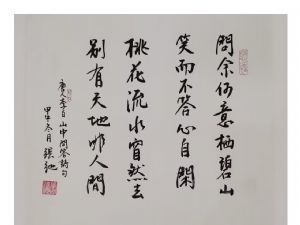 問余何意栖碧山
笑而不答心自閑
桃花流水窅然去
别有天地非人間
唐人李白山中問答詩句
甲午冬月 鎮池